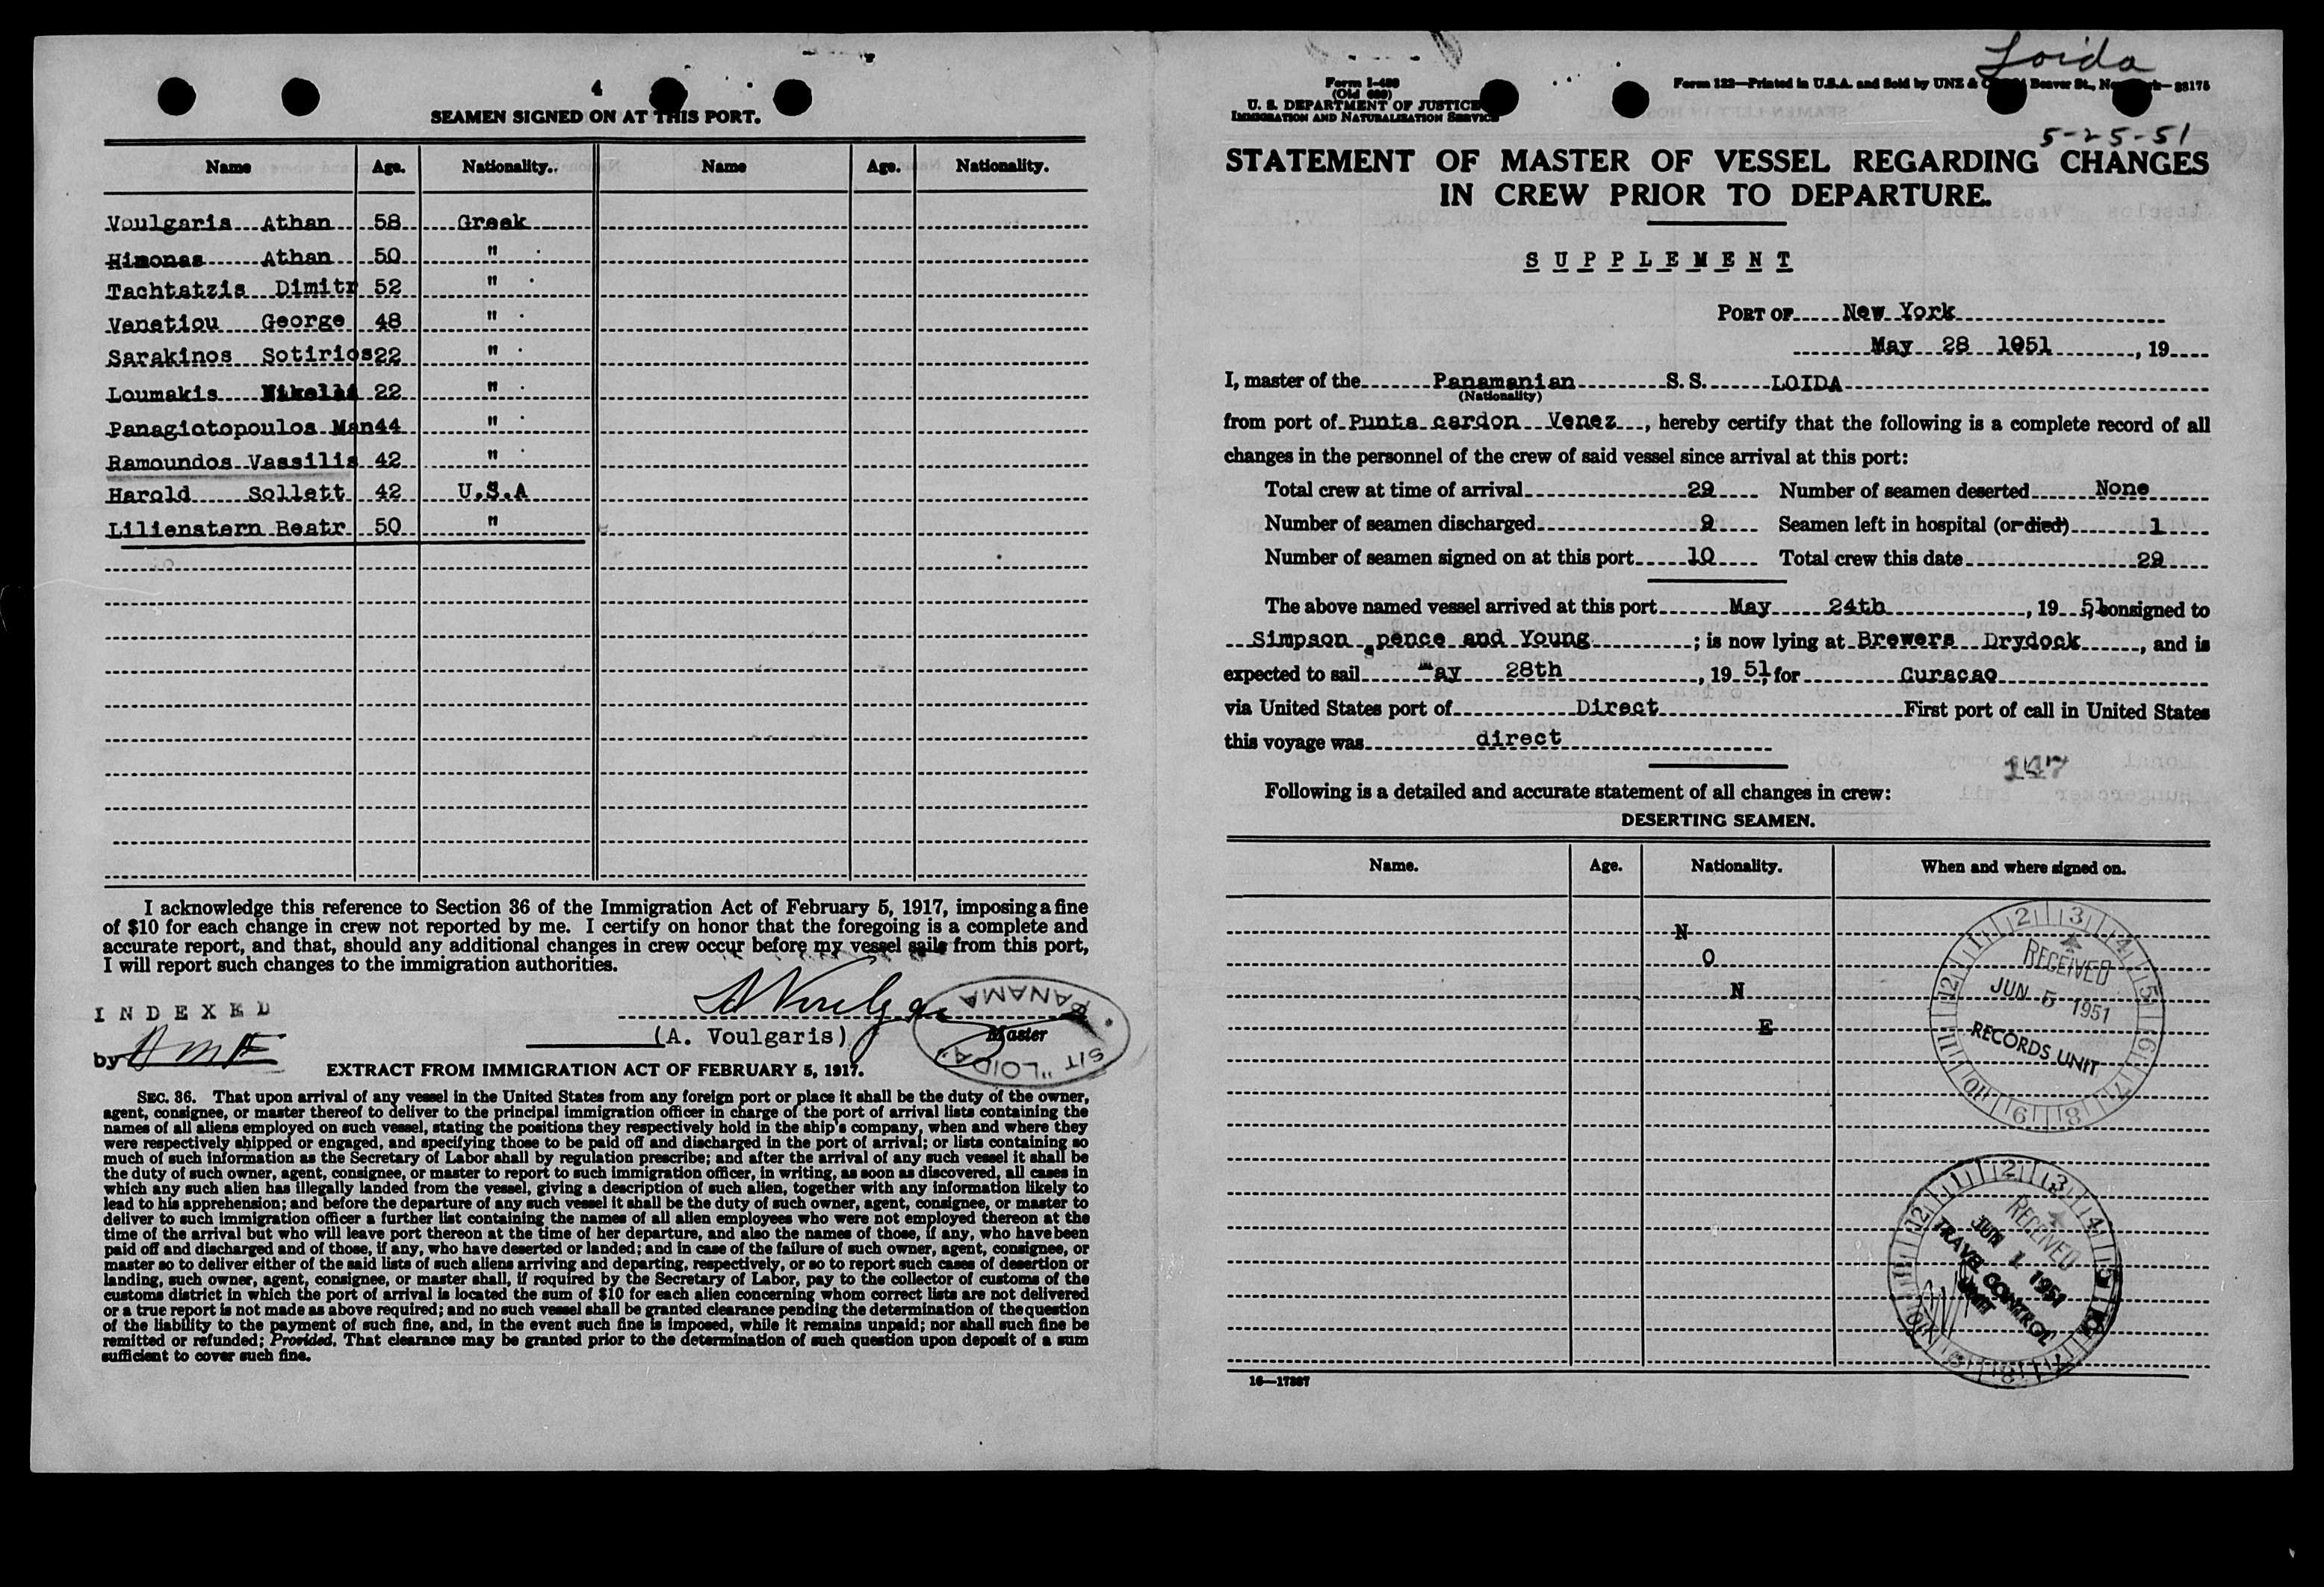 4
SEAMEN SIGNED ON AT THIS PORT.
Name Age. Nationality. Name Age. Nationality.
Voulgaris Athan 58 Greek
Himonas Athan 50 "
Tachtatzis Dimitr 52 "
Vanatiou George 48 "
Sarakinos Sotirios 22 "
Loumakis Nikolli 22 "
Panagiotopoulos Man 44 "
Ramoundos Vassilis 42 "
Harold Sollett 42 U.S.A
Lilienstern Beatr 50 "
I acknowledge this reference to Section 36 of the Immigration Act of February 5, 1917, imposing a fine
of $10 for each change in crew not reported by me. I certify on honor that the foregoing is a complete and
accurate report, and that, should any additional changes in crew occur before my vessel sails from this port,
I will report such changes to the immigration authorities.
INDEXED
by
(A. Voulgaris)
Master
PANAMA
S/T "LOIDA"
EXTRACT FROM IMMIGRATION ACT OF FEBRUARY 5, 1917.
SEC. 36. That upon arrival of any vessel in the United States from any foreign port or place it shall be the duty of the owner,
agent, consignee, or master thereof to deliver to the principal immigration officer in charge of the port of arrival lists containing the
names of all aliens employed on such vessel, stating the positions they respectively hold in the ship's company, when and where they
were respectively shipped or engaged, and specifying those to be paid off and discharged in the port of arrival; or lists containing so
much of such information as the Secretary of Labor shall by regulation prescribe; and after the arrival of any such vessel it shall be
the duty of such owner, agent, consignee, or master to report to such immigration officer, in writing, as soon as discovered, all cases in
which any such alien has illegally landed from the vessel, giving a description of such alien, together with any information likely to
lead to his apprehension; and before the departure of any such vessel it shall be the duty of such owner, agent, consignee, or master to
deliver to such immigration officer a further list containing the names of all alien employees who were not employed thereon at the
time of the arrival but who will leave port thereon at the time of her departure, and also the names of those, if any, who have been
paid off and discharged and of those, if any, who have deserted or landed; and in case of the failure of such owner, agent, consignee, or
master so to deliver either of the said lists of such aliens arriving and departing, respectively, or so to report such cases of desertion or
landing, such owner, agent, consignee, or master shall, if required by the Secretary of Labor, pay to the collector of customs of the
customs district in which the port of arrival is located the sum of $10 for each alien concerning whom correct lists are not delivered
or a true report is not made as above required; and no such vessel shall be granted clearance pending the determination of the question
of the liability to the payment of such fine, and, in the event such fine is imposed, while it remains unpaid; nor shall such fine be
remitted or refunded; Provided, That clearance may be granted prior to the determination of such question upon deposit of a sum
sufficient to cover such fine.
Loida
Form I-489
(Old 689)
U. S. DEPARTMENT OF JUSTICE
IMMIGRATION AND NATURALIZATION SERVICE
Form 122—Printed in U.S.A. and Sold by UNZ & Beaver St., 38175
5-25-51
STATEMENT OF MASTER OF VESSEL REGARDING CHANGES
IN CREW PRIOR TO DEPARTURE.
SUPPLEMENT
PORT OF New York
May 28 1951, 19
I, master of the Panamanian S.S. LOIDA
(Nationality)
from port of Punta cardon Venez, hereby certify that the following is a complete record of all
changes in the personnel of the crew of said vessel since arrival at this port:
Total crew at time of arrival 29 Number of seamen deserted None
Number of seamen discharged 9 Seamen left in hospital (or died) 1
Number of seamen signed on at this port 10 Total crew this date 29
The above named vessel arrived at this port May 24th, 19 51, consigned to
Simpson, pence and Young; is now lying at Brewers Drydock, and is
expected to sail May 28th, 19 51, for Curacao
via United States port of Direct First port of call in United States
this voyage was direct
147
Following is a detailed and accurate statement of all changes in crew:
DESERTING SEAMEN.
Name. Age. Nationality. When and where signed on.
N
O
N
E
RECEIVED
JUN 5 1951
RECORDS UNIT
1 2 3 4 5 6 7 8 9 10 11 12
RECEIVED
JUN 1 1951
TRAVEL CONTROL
UNIT
16—17887